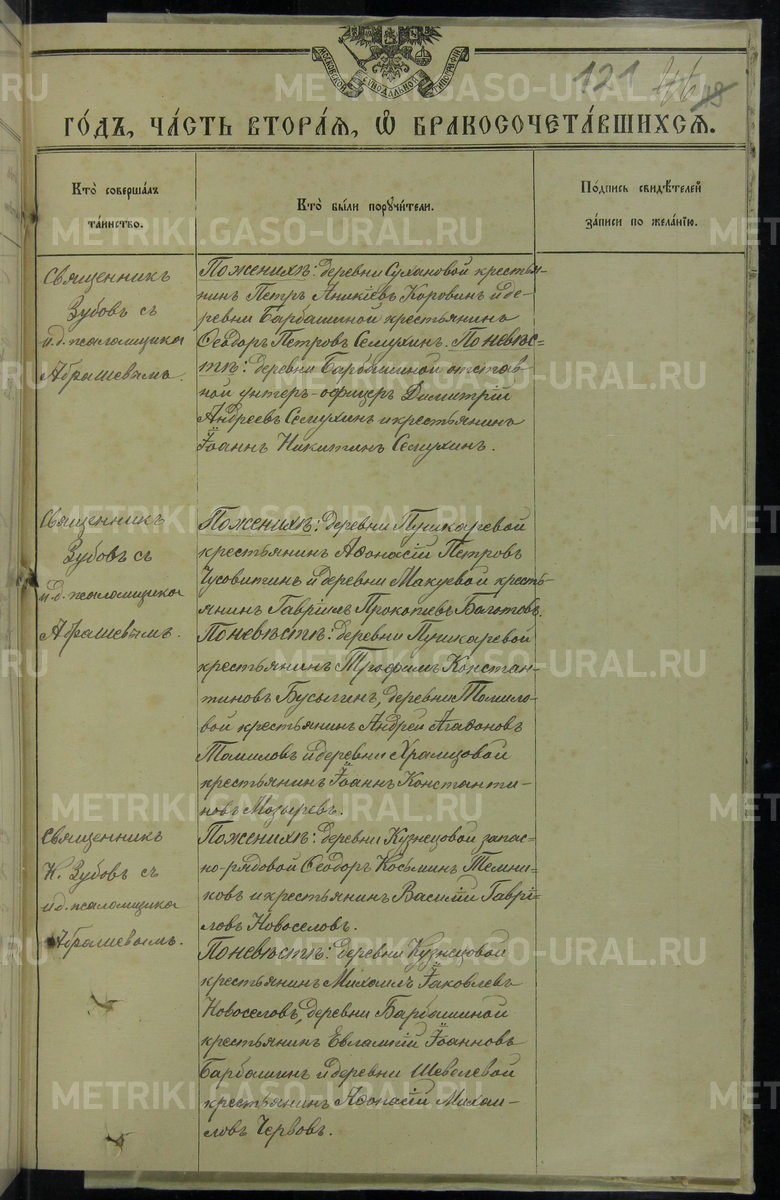 МОСКОВСКОЙ СѴНОДАЛЬНОЙ ТИПОГРАФІИ
121
ГО́ДЪ, ЧА́СТЬ ВТОРА́Я, Ѿ БРАКОСОЧЕТА́ВШИХСЯ.
Кто̀ соверша́лъ та́инство.
Кто̀ бы́ли пору́чи́тели.
По́дпись свидѣ́телей за́писи по жела́нію.
Священникъ
Зубовъ съ
и.д. псаломщика
Абрашевымъ.
По женихѣ: деревни Сухановой крестья-
нинъ Петръ Аникіевъ Коровинъ и де-
ревни Барбашиной крестьянинъ
Ѳеодоръ Петровъ Семухинъ. По невѣс-
тѣ: деревни Барбашиной отстав-
ной унтеръ-офицеръ Димитрій
Андреевъ Семухинъ и крестьянинъ
Іоаннъ Никитинъ Семухинъ.
Священникъ
Зубовъ съ
и.д. псаломщика
Абрашевымъ.
По женихѣ: деревни Пушкаревой
крестьянинъ Аѳонасій Петровъ
Чусовитинъ и деревни Макуевой кресть-
янинъ Гавріилъ Прокопіевъ
По невѣстѣ: деревни Пушкаревой
крестьянинъ Трофимъ Констан-
тиновъ Бусыгинъ, деревни Томило-
вой крестьянинъ Андрей Агаѳоновъ
Томиловъ и деревни Храмцовой
крестьянинъ Іоаннъ Константи-
новъ Мозыревъ.
Священникъ
Н. Зубовъ съ
и.д. псаломщика
Абрашевымъ.
По женихѣ: деревни Кузнецовой запас-
но-рядовой Ѳеодоръ Косьминъ Темни-
ковъ и крестьянинъ Василій Гаврі-
ловъ Новоселовъ.
По невѣстѣ: деревни Кузнецовой
крестьянинъ Михаилъ Іаковлевъ
Новоселовъ, деревни Барбашиной
крестьянинъ Евлампій Іоанновъ
Барбашинъ и деревни Шевелевой
крестьянинъ Аѳонасій Михаи-
ловъ Червовъ.
METRIKI.GASO-URAL.RU
METRIKI.GASO-URAL.RU
METRIKI.GASO-URAL.RU
METRIKI.GASO-URAL.RU
METRIKI.GASO-URAL.RU
METRIKI.GASO-URAL.RU
METRIKI.GASO-URAL.RU
METRIKI.GASO-URAL.RU